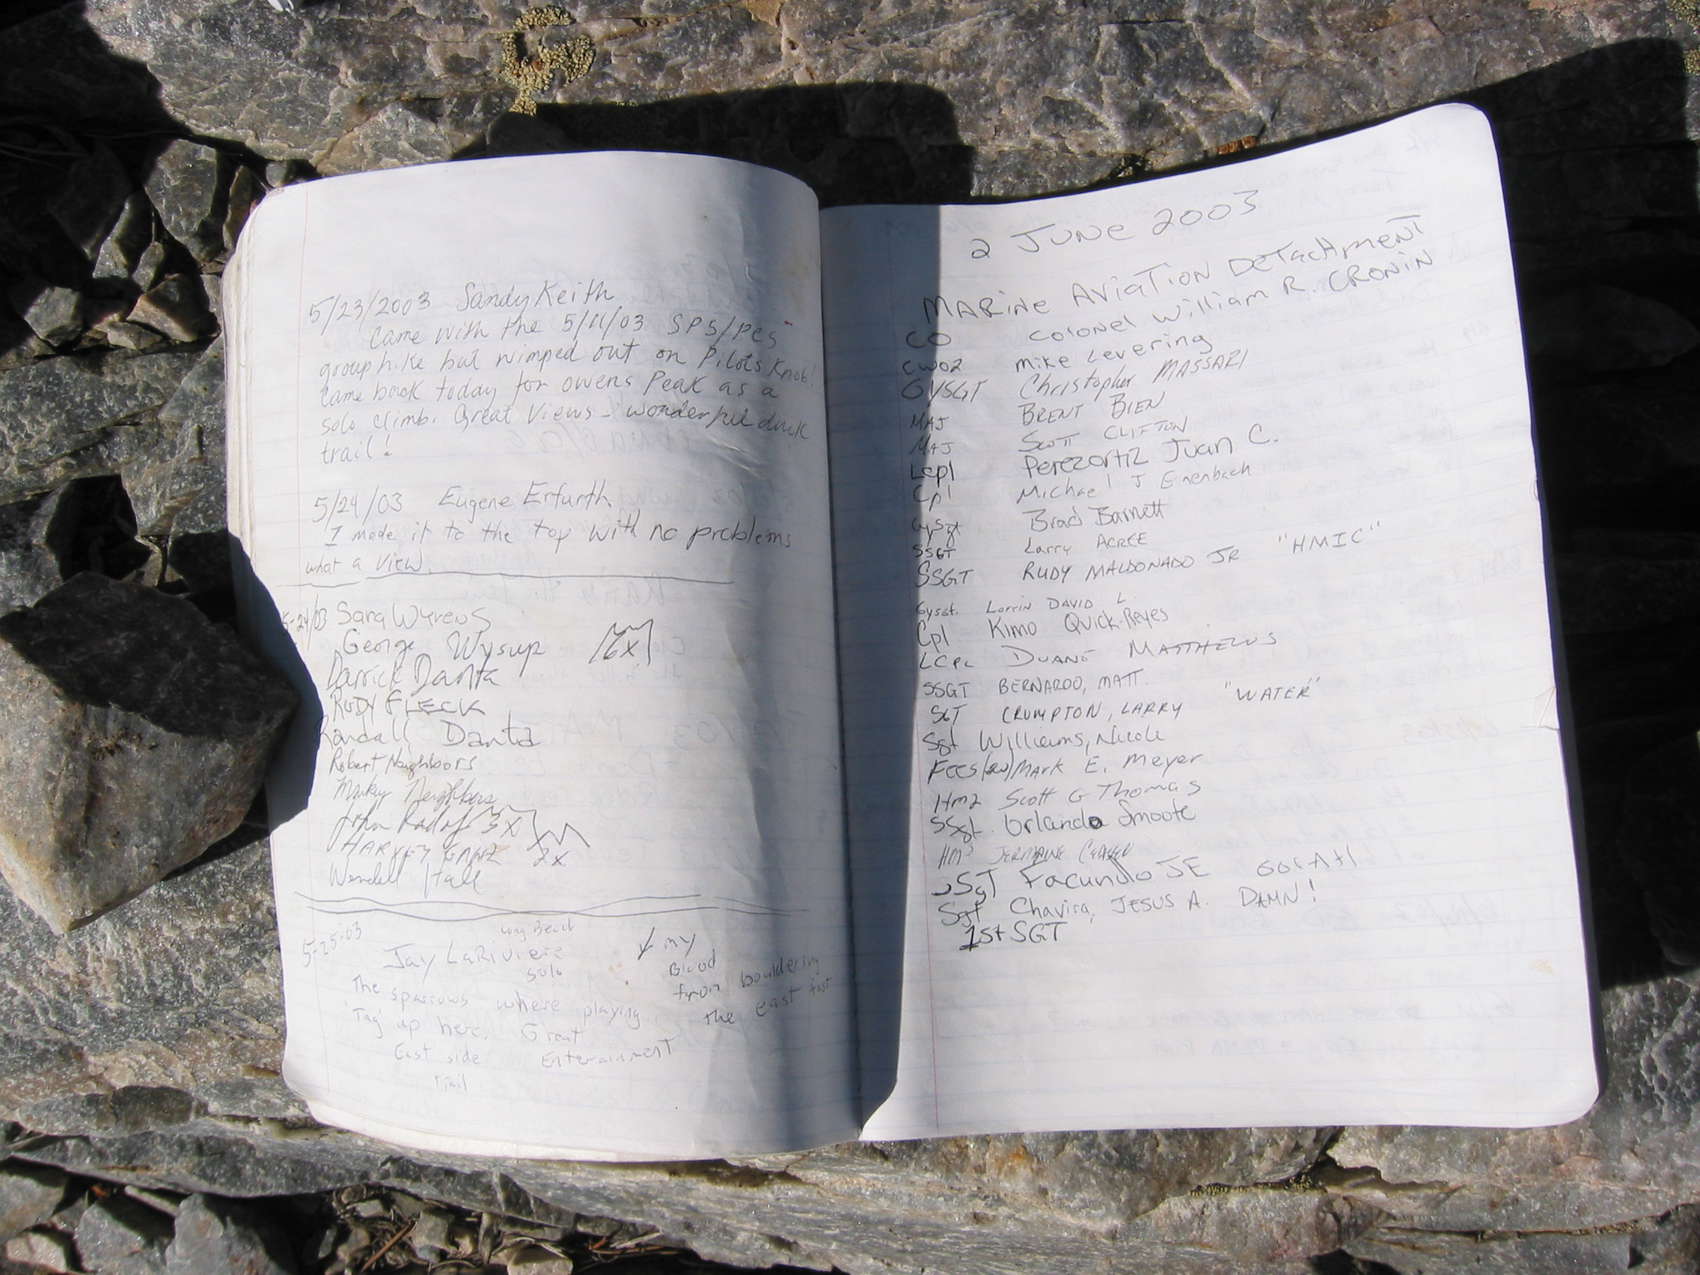 5/23/2003 Sandy Keith
Came with the 5/11/03 SPS/PCS
group hike but wimped out on Pilots Knob!
Came back today for Owens Peak as a
solo climb. Great Views - wonderful duck
trail!
5/24/03 Eugene Erfurth
I made it to the top with no problems
what a view.
5-24/03 Sara Wyrens
George Wysup 6x
Darrick Danta
RUDY FLECK
Randall Danta
Robert Neighbors
Marky Neighbors
John Radalf 3x
HARVEY GANZ 2x
Wendell Hall
5-25-03 Jay LaRiviere Long Beach
solo
The sparrows where playing
Tag up here. Great
East side Entertainment
Trail
my
Blood
from bouldering
the east
2 JUNE 2003
MARINE AVIATION DETACHMENT
CO Colonel William R. CRONIN
CWO2 Mike Levering
GYSGT Christopher MASSARI
MAJ BRENT BIEN
MAJ SCOTT CLIFTON
Lcpl Perezortiz Juan C.
Cpl Michael J
Gysgt Brad Barnett
SSGT Larry ACREE
SSGT RUDY MALDONADO JR "HMIC"
Gysgt. Lorrin DAVID L.
Cpl Kimo Quick-Reyes
LCPL DUANE MATTHEWS
SSGT BERNARDO, MATT.
SGT CRUMPTON, LARRY "WATER"
Sgt Williams, Nicole
Mark E. Meyer
HM2 Scott G Thomas
SSgt. Orlando Smoote
HM3 JERMAINE
SSgT Facundo JE
Sgt Chavira, JESUS A. DAMN!
1st SGT